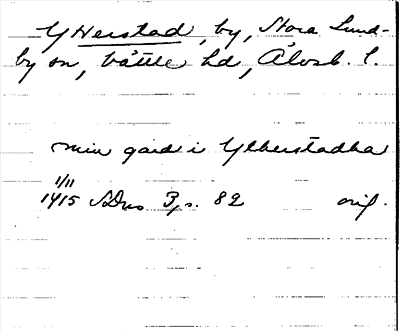 Ylterstad, by, Stora Lund-
by sn, Vättle hd, Älvsb. l.
min gard i Ylberstadha
1/11
1415 SDns 3, s. 82 orig.